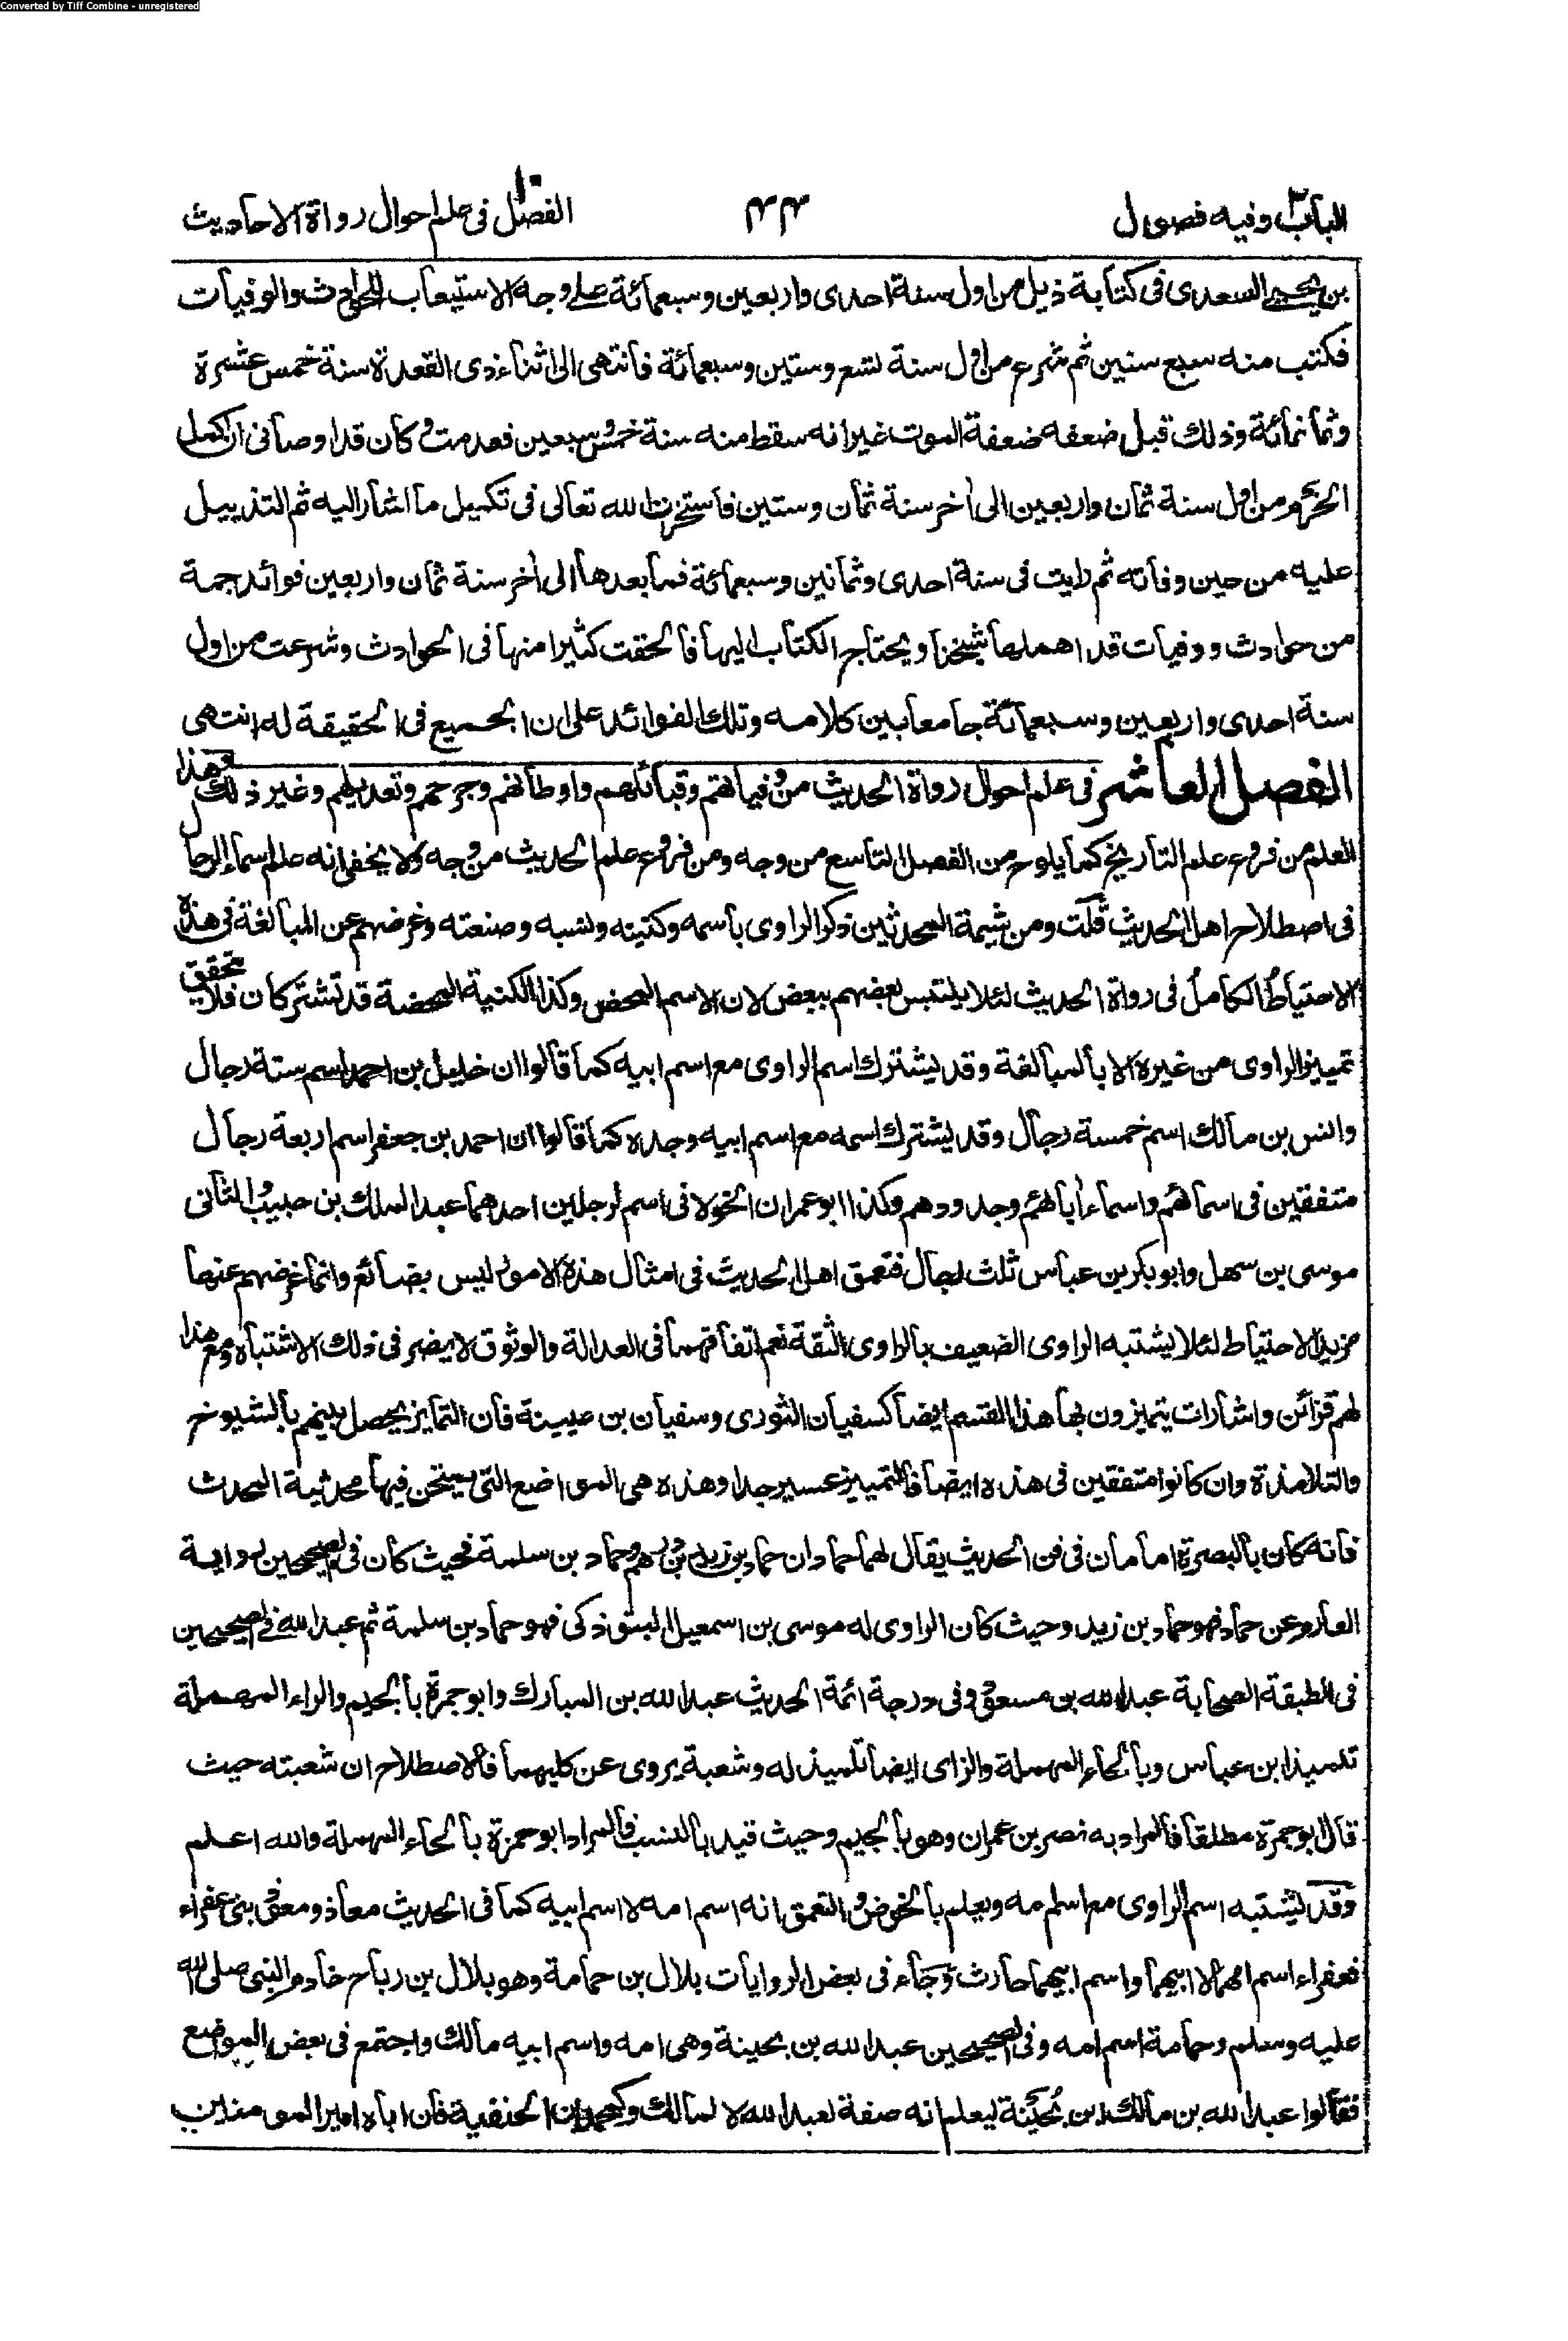 Converted by Tiff Combine - unregistered
الباب ٣ وفيه فصول
٤٤
الفصل ١٠ فى علم احوال رواة الاحاديث
بن يحيى السعدى فى كتابة ذيل من اول سنة احدى واربعين وسبعمائة على وجه الاستيعاب للحوادث والوفيات
فكتب منه سبع سنين ثم شرع من اول سنة تسع وستين وسبعمائة فانتهى الى اثناء ذى القعدة سنة خمس عشرة
وثمانمائة وذلك قبل ضعفه ضعفة الموت غير انه سقط منه سنة خمس وسبعين فعدمت وكان قد اوصانى ان اكمل
الخرم من اول سنة ثمان واربعين الى اٰخر سنة ثمان وستين فاستخرت الله تعالى فى تكميل ما اشار اليه ثم التذييل
عليه من حين وفاته ثم رايت فى سنة احدى وثمانين وسبعمائة فما بعدها الى اٰخر سنة ثمان واربعين فوائد جمة
من حوادث ووفيات قد اهملها شيخنا ويحتاج الكتاب اليها فالحقت كثيرا منها فى الحوادث وشرعت من اول
سنة احدى واربعين وسبعمائة جامعا بين كلامه وتلك الفوائد على ان الجميع فى الحقيقة له انتهى
الفصل العاشر فى علم احوال رواة الحديث من وفياتهم وقبائلهم واوطانهم وجرحهم وتعديلهم وغير ذلك وهذا
العلم من فروع علم التاريخ كما يلوح من الفصل التاسع من وجه ومن فروع علم الحديث من وجه ولا يخفى انه علم اسماء الرجال
فى اصطلاح اهل الحديث قلت ومن شيمة المحدثين ذكر الراوى باسمه وكنيته ونسبه وصنعته وغرضهم عن المبالغة فى هذه
الاحتياط الكامل فى رواة الحديث لئلا يلتبس بعضهم ببعض لان الاسم المحض وكذا الكنية المحضة قد تشتركان فلا يتحقق
تمييز الراوى من غيره الا بالمبالغة وقد يشترك اسم الراوى مع اسم ابيه كما قالوا ان خليل بن احمد اسم ستة رجال
وانس بن مالك اسم خمسة رجال وقد يشترك اسمه مع اسم ابيه وجده كما قالوا ان احمد بن جعفر اسم اربعة رجال
متفقين فى اسمائهم واسماء اٰبائهم وجدودهم وكذا ابو عمران الخولانى اسم لرجلين احدهما عبد الملك بن حبيب والثانى
موسى بن سهل وابو بكر بن عباس ثلث رجال فتعمق اهل الحديث فى امثال هذه الامور ليس بضائع وانما غرضهم عنها
مزيد الاحتياط لئلا يشتبه الراوى الضعيف بالراوى الثقة نعم اتفاقهما فى العدالة والوثوق لا يضر فى ذلك الاشتباه ومع هذا
لهم قرائن واشارات يتميزون بها هذا القسم ايضا كسفيان الثورى وسفيان بن عيينة فان التمايز يحصل بينهم بالشيوخ
والتلامذة وان كانوا متفقين فى هذه ايضا فالتمييز عسير جدا وهذه هى المواضع التى يمتحن فيها محدثية المحدث
فانه كان بالبصرة امامان فى فن الحديث يقال لهما حمادان حماد بن زيد بن درهم وحماد بن سلمة فحيث كان فى الصحيحين رواية
العارم عن حماد فهو حماد بن زيد وحيث كان الراوى له موسى بن اسمعيل التبوذكى فهو حماد بن سلمة ثم عبد الله فى الصحيحين
فى الطبقة الصحابة عبد الله بن مسعود وفى درجة ائمة الحديث عبد الله بن المبارك وابو جمرة بالجيم والراء المهملة
تلميذ ابن عباس وبالحاء المهملة والزاى ايضا تلميذ له وشعبة يروى عن كليهما فالاصطلاح ان شعبته حيث
قال ابو جمرة مطلقا فالمراد به نصر بن عمران وهو بالجيم وحيث قيد بالنسب فالمراد ابو حمزة بالحاء المهملة والله اعلم
وقد يشتبه اسم الراوى مع اسم امه ويعلم بالخوض والتعمق انه اسم امه لا اسم ابيه كما فى الحديث معاذ ومعوذ بنى عفراء
فعفراء اسم امهما لا ابيهما واسم ابيهما حارث وجاء فى بعض الروايات بلال بن حمامة وهو بلال بن رباح خادم النبى صلى الله
عليه وسلم وحمامة اسم امه وفى الصحيحين عبد الله بن بحينة وهى امه واسم ابيه مالك واجتمع فى بعض الموضع
فقالوا عبد الله بن مالك ابن بُحَيْنة ليعلم انه صفة لعبد الله لا لمالك وكمحمد بن الحنفية فان اباه امير المومنين